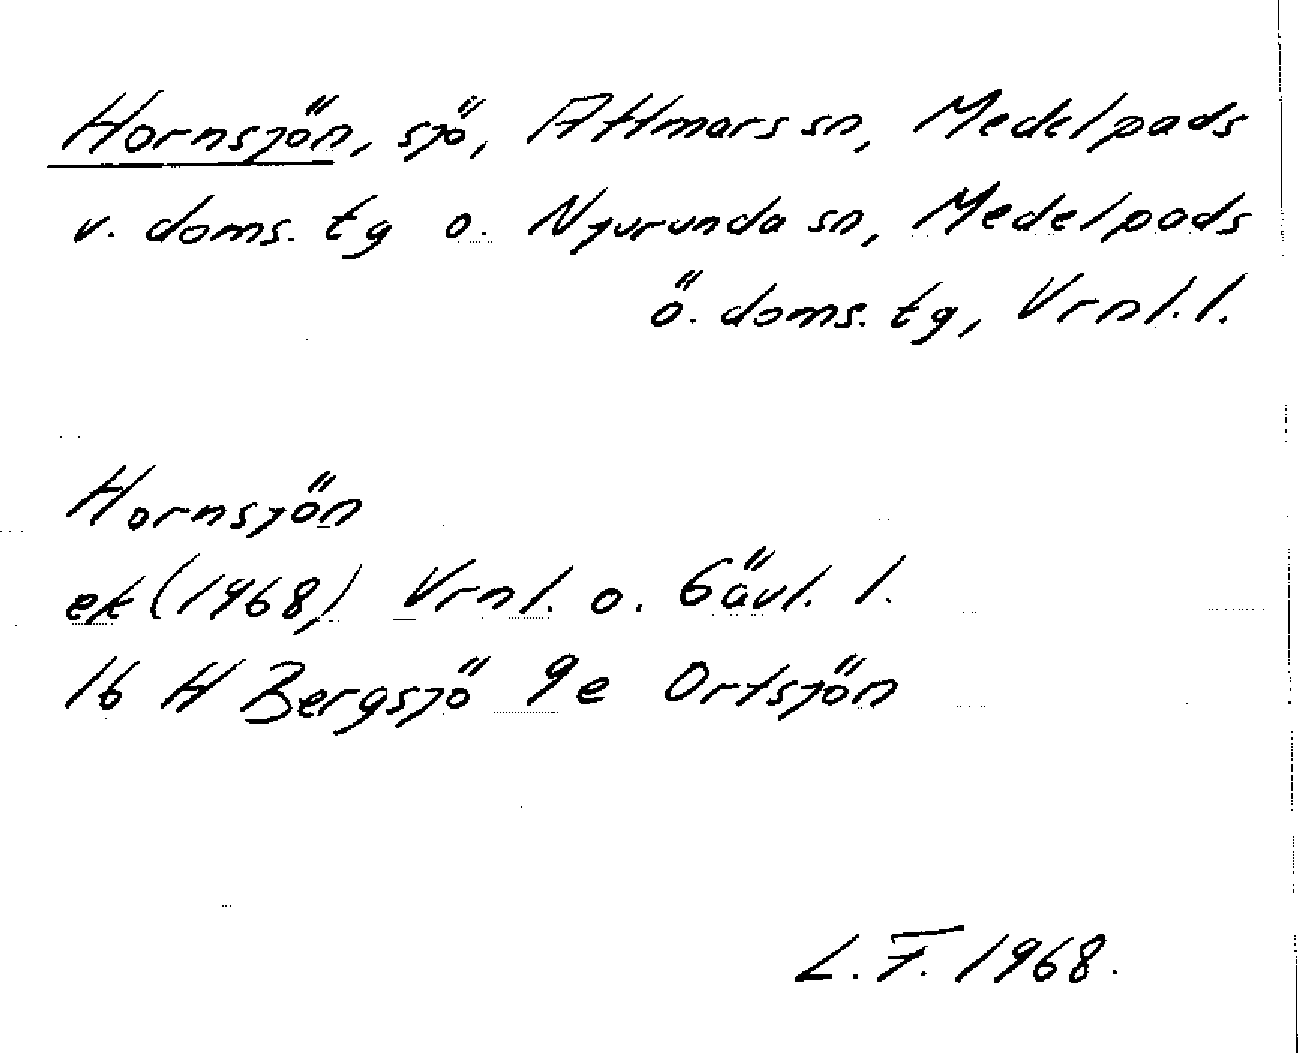 Hornsjön, sjö, Attmars sn, Medelpads
v. doms. tg o. Njurunda sn, Medelpads
ö. doms. tg, Vrnl. l.
Hornsjön
ek (1968) Vrnl. o. Gävl. l.
16 H Bergsjö 9e Ortsjön
L. F. 1968.